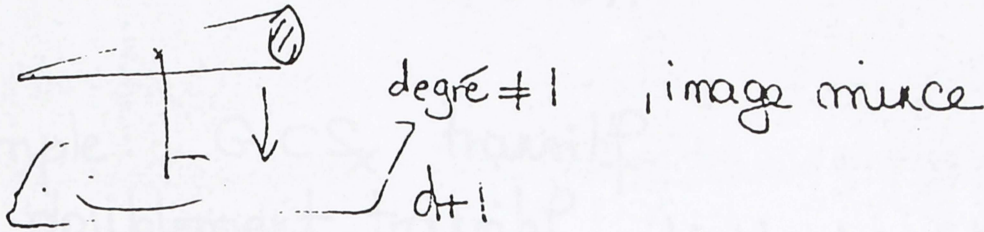 degré ≠ 1 , image mince
d+1